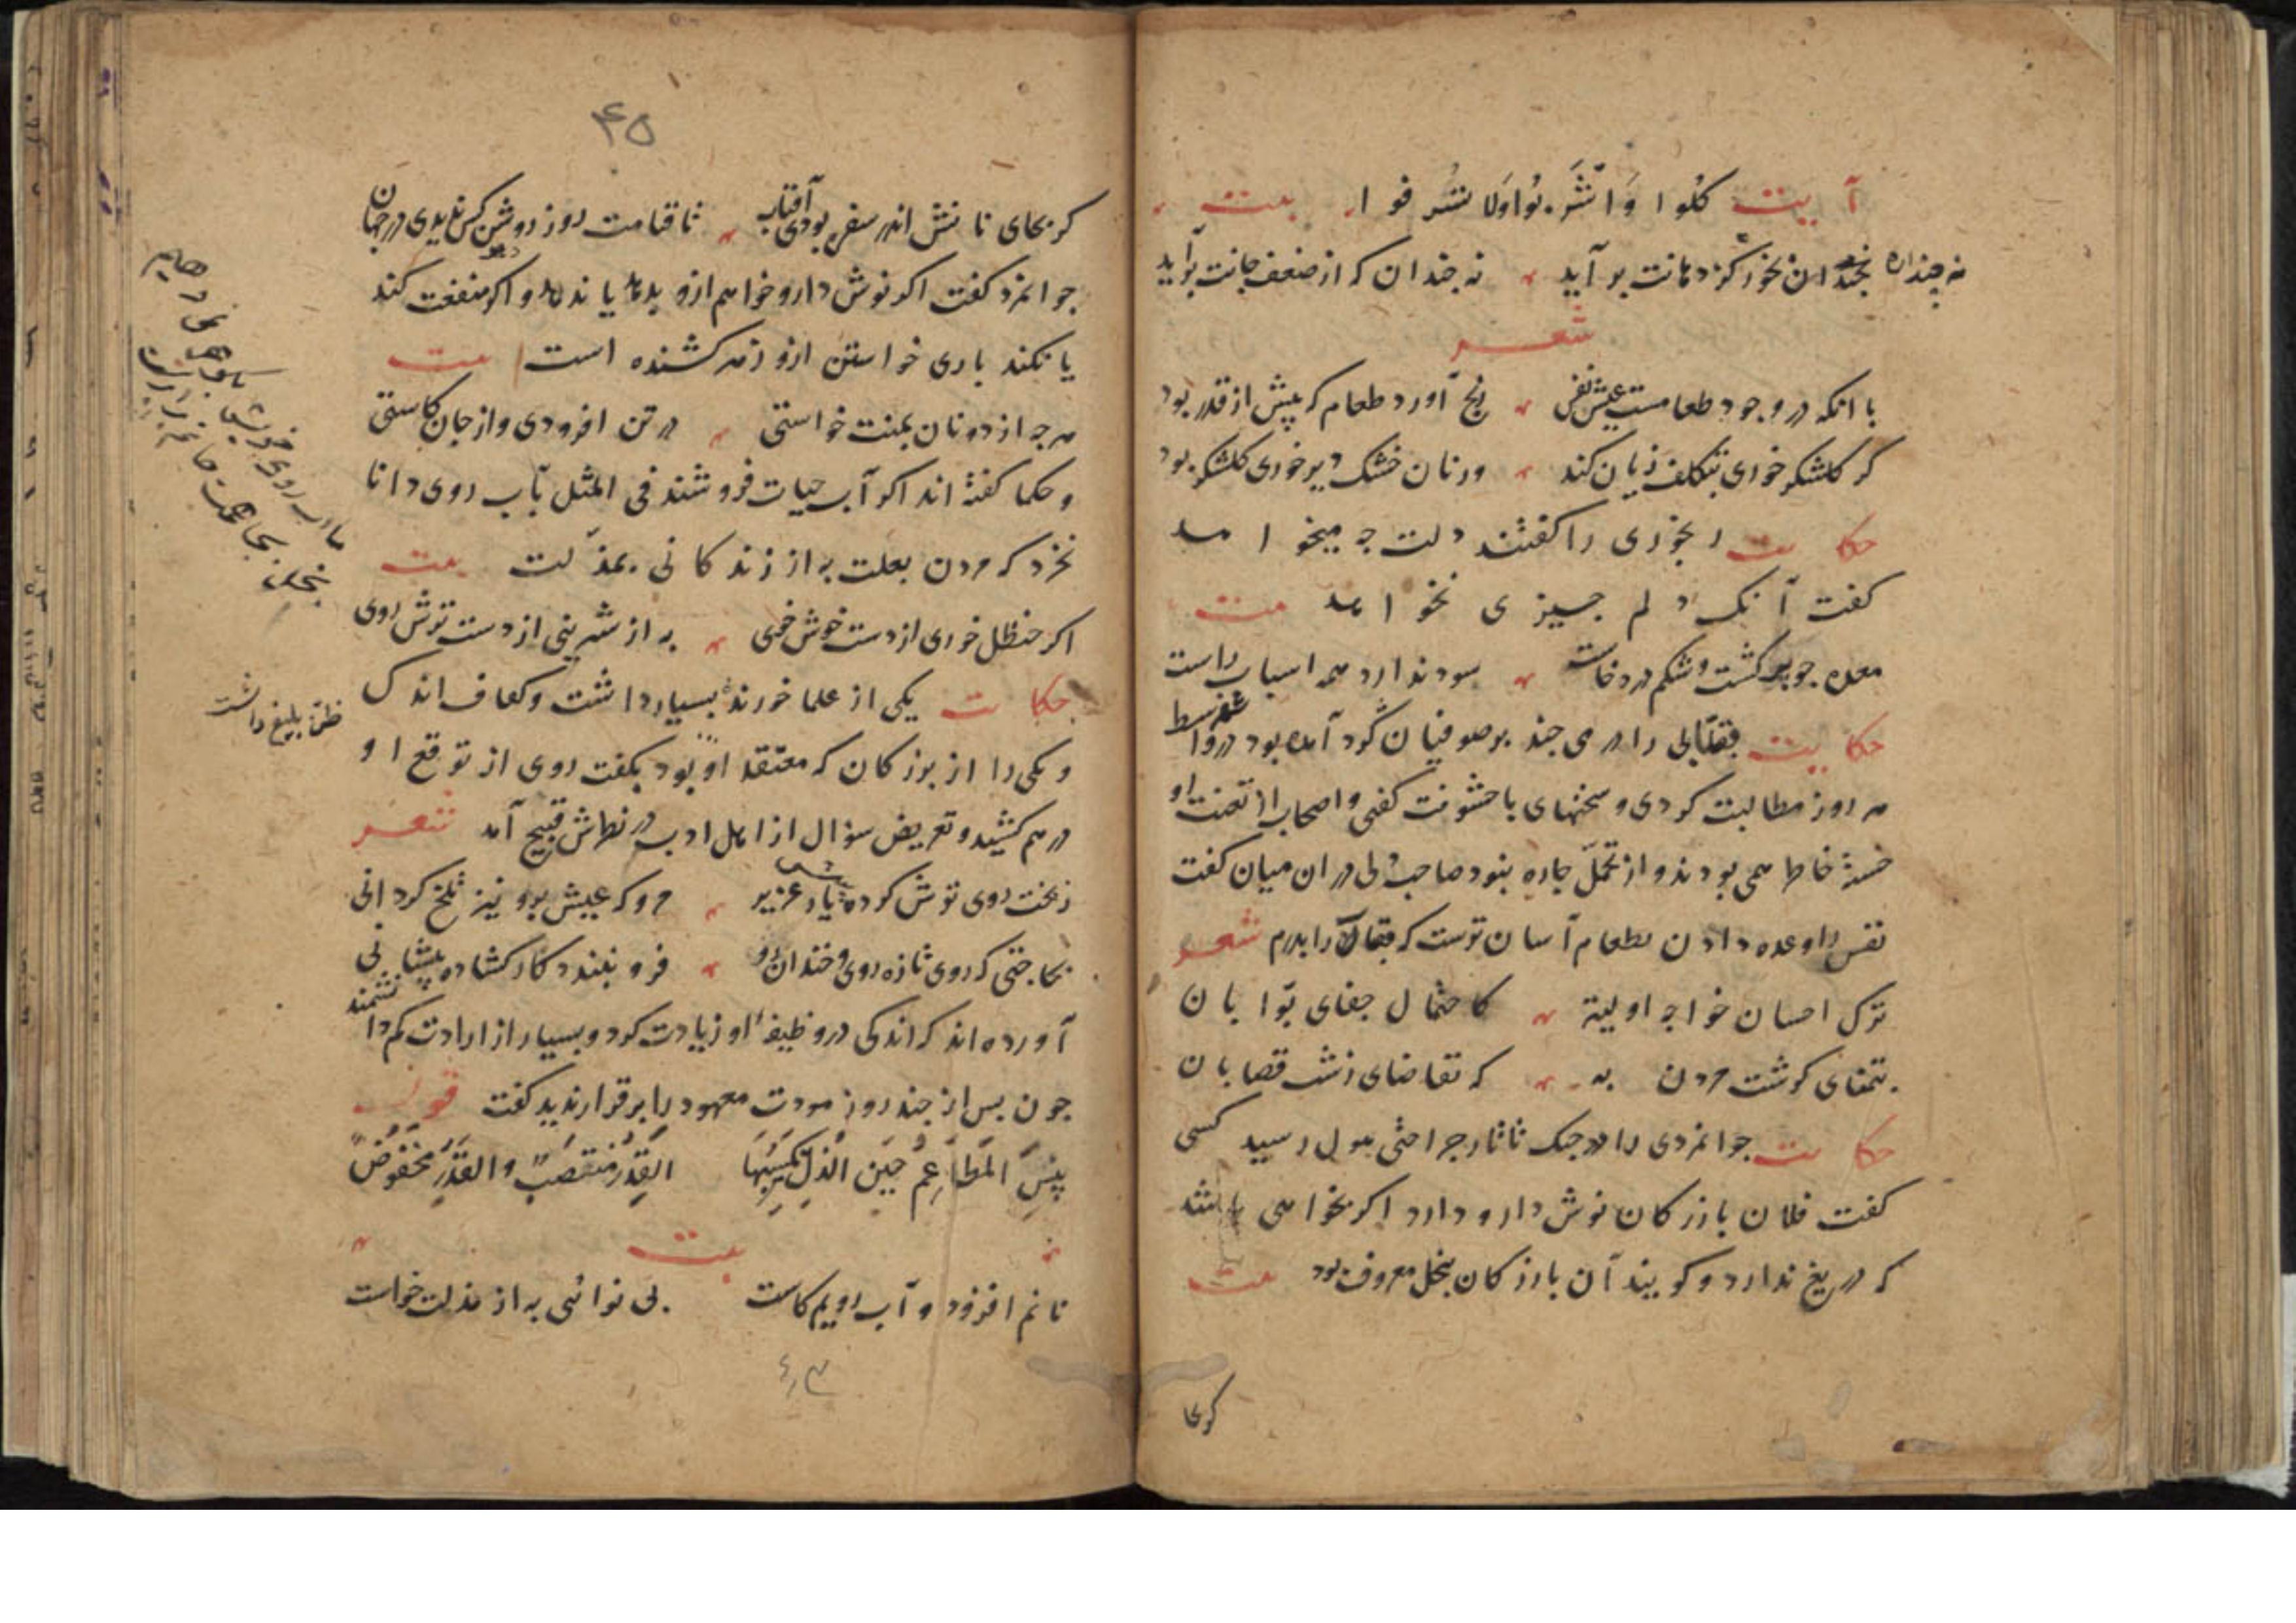 آیت کُلُوا وَاشْرَبُوا وَلَا تُسْرِفُوا بیت
نه چندان بخور کز دهانت بر آید نه چندان که از ضعف جانت بر آید
شعر
با انکه در وجود طعامست عیش نفس رنج آورد طعام که بیش از قدر بود
کر کلشکر خوری بتکلف زیان کند ور نان خشک دیر خوری کلشکر بود
حکایت رنجوری را کفتند دلت چه میخواهد
کفت آنک دلم چیزی نخواهد بیت
معده چو پر کشت و شکم درد خاست سود ندارد همه اسباب راست
حکایت بقّالی را درمی چند بر صوفیان کرد آمده بود در واسط
هر روز مطالبت کردی و سخنهای با خشونت کفتی و اصحاب از تعنت او
خستهٔ خاطر همی بودند و از تحمّل چاره نبود صاحب دلی در ان میان کفت
نفس را وعده دادن بطعام آسان ترست که بقال را بدرم شعر
ترک احسان خواجه اولیتر کاحتمال جفای بوّابان
بتمنای کوشت مردن به که تقاضای زشت قصابان
حکایت جوانمردی را در جنک تاتار جراحتی هول رسید کسی
کفت فلان بازرکان نوش دارو دارد اکر بخواهی باشد
که دریغ ندارد و کویند آن بازرکان ببخل معروف بود بیت
کر بجا
۴۵
کر بجای نانش اندر سفره بودی آفتاب تا قیامت روز روشن کس ندیدی در جهان
جوانمرد کفت اکر نوش دارو خواهم ازو بدهد یا ندهد و اکر دهد منفعت کند
یا نکند باری خواستن ازو زهر کشنده است بیت
هر چه از دونان بمنت خواستی در تن افزودی و از جان کاستی
و حکما کفتهٔ اند اکر آب حیات فروشند فی المثل بآب روی دانا
نخرد که مردن بعلت به از زندکانی بمذلّت بیت
اکر حنظل خوری از دست خوش خوی به از شیرینی از دست ترش روی
حکایت یکی از علما خورندهٔ بسیار داشت و کفاف اندک
و یکی را از بزرکان که معتقد او بود بکفت روی از توقع او
ظنّ بلیغ داشت
درهم کشید و تعریض سؤال از اهل ادب در نظرش قبیح آمد شعر
ز بخت روی ترش کرده پیش یار عزیز مرو که عیش برو نیز تلخ کردانی
بحاجتی که روی تازه روی و خندان رو فرو نبندد کار کشاده پیشانی
آورده اند که اندکی در وظیفهٔ او زیادت کرد و بسیار از ارادت کم دانشمند
چون پس از چند روز مودت معهود را بر قرار ندید کفت قول
بِئْسَ الْمَطَاعِمُ حِینَ الذُّلِّ تَکْسِبُهَا القِدْرُ مُنْتَصَبٌ وَالقَدْرُ مَخْفُوضٌ
بیت
نانم افزود و آب رویم کاست بی نوائی به از مذلت خواست